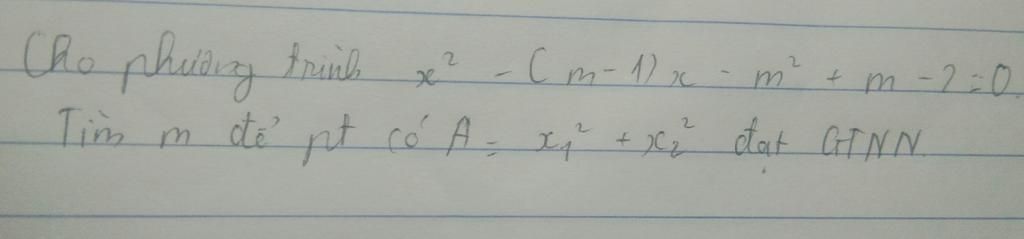 Cho phương trình x² - (m-1)x - m² + m - 2 = 0.
Tìm m để pt có A = x₁² + x₂² đạt GTNN.